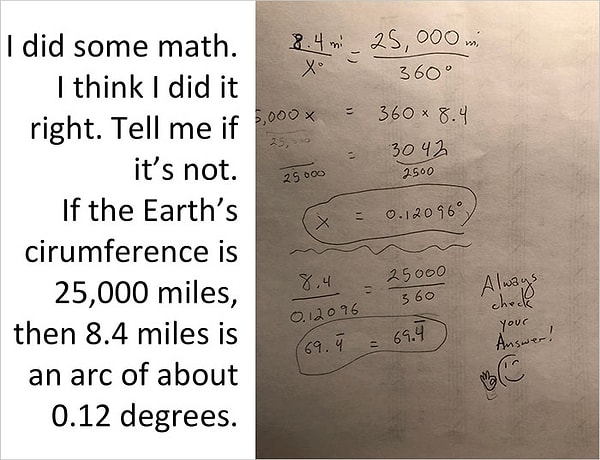 I did some math.
I think I did it
right. Tell me if
it’s not.
If the Earth’s
cirumference is
25,000 miles,
then 8.4 miles is
an arc of about
0.12 degrees.
8.4 mi = 25,000 mi
x° 360°
5,000 x = 360 × 8.4
25,000
= 3042
25000 2500
x = 0.12096°
8.4 = 25000
0.12096 360
69.4̅ = 69.4̅
Always
check
your
Answer!